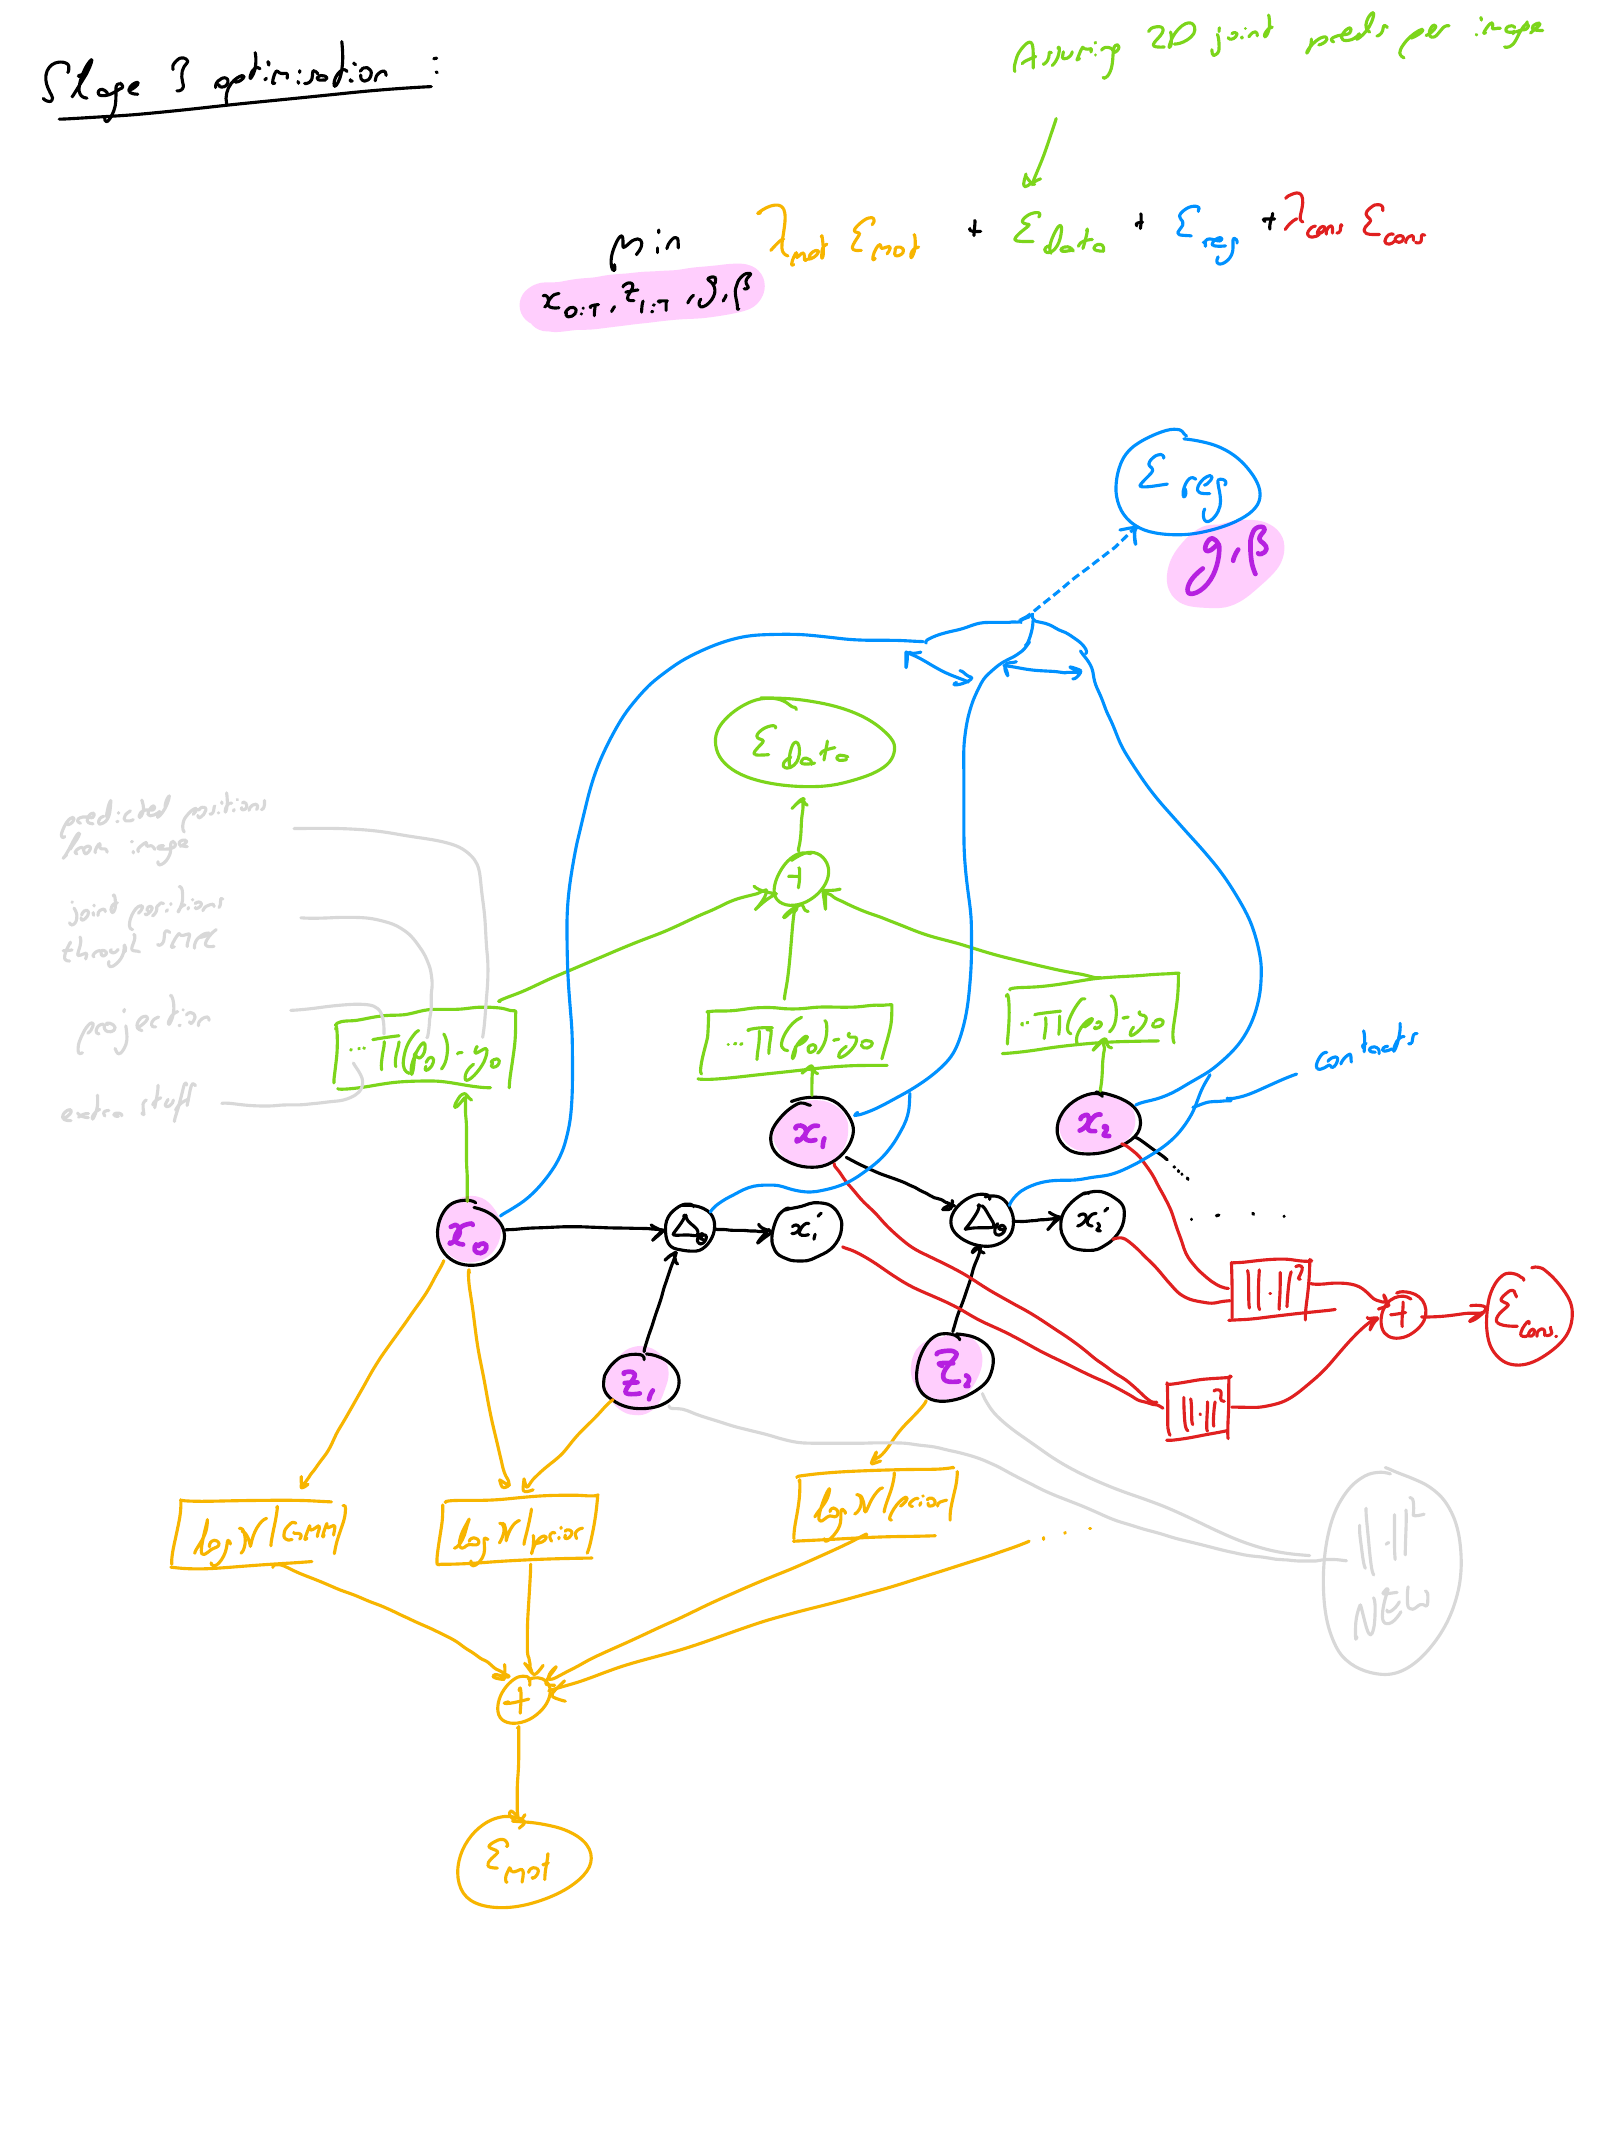 Stage 3 optimisation :
Assuming 2D joint preds per image
min λmot Ɛmot + ƐData + Ɛreg + λcons Ɛcons
x0:T, z1:T, g, β
Ɛreg
g, β
ƐData
predicted positions
from image
+
joint positions
through SMPL
projection
... Π(p0) - y0
... Π(p0) - y0
... Π(p0) - y0
contacts
extra stuff
x1
x2
x0
Δθ
x1'
Δθ
x2'
||·||²
+
Ɛcons.
z1
z2
||·||²
log N / GMM
log N / prior
log N / prior
||·||²
NEW
+
Ɛmot